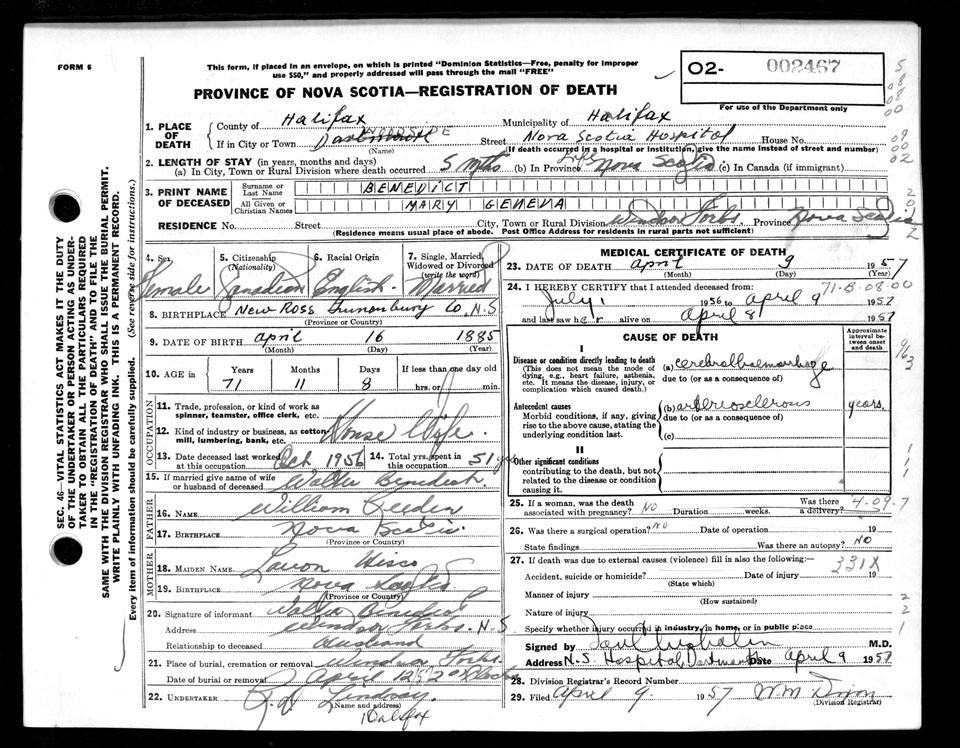 FORM 6
This form, if placed in an envelope, on which is printed "Dominion Statistics—Free, penalty for improper
use $50," and properly addressed will pass through the mail "FREE"
PROVINCE OF NOVA SCOTIA—REGISTRATION OF DEATH
O2- 002467
For use of the Department only
SEC. 46—VITAL STATISTICS ACT MAKES IT THE DUTY
OF THE UNDERTAKER OR PERSON ACTING AS UNDER-
TAKER TO OBTAIN ALL THE PARTICULARS REQUIRED
IN THE "REGISTRATION OF DEATH" AND TO FILE THE
SAME WITH THE DIVISION REGISTRAR WHO SHALL ISSUE THE BURIAL PERMIT.
WRITE PLAINLY WITH UNFADING INK. THIS IS A PERMANENT RECORD.
Every item of information should be carefully supplied. (See reverse side for instructions.)
1. PLACE OF DEATH
County of Halifax Municipality of Halifax
If in City or Town Dartmouth WOODSIDE Street Nova Scotia Hospital House No.
(Name) (If death occurred in a hospital or institution, give the name instead of street and number)
2. LENGTH OF STAY (in years, months and days)
(a) In City, Town or Rural Division where death occurred 5 mths (b) In Province Life Nova Scotia (c) In Canada (if immigrant)
3. PRINT NAME OF DECEASED
Surname or Last Name BENEDICT
All Given or Christian Names MARY GENEVA
RESIDENCE No. Street City, Town or Rural Division Windsor Forks Province Nova Scotia
(Residence means usual place of abode. Post Office Address for residents in rural parts not sufficient)
4. Sex 5. Citizenship (Nationality) 6. Racial Origin 7. Single, Married, Widowed or Divorced (write the word)
Female Canadian English Married
8. BIRTHPLACE New Ross Lunenburg Co. N.S
(Province or Country)
9. DATE OF BIRTH April 16 1885
(Month) (Day) (Year)
10. AGE in Years Months Days If less than one day old
71 11 8 hrs. or min.
OCCUPATION
11. Trade, profession, or kind of work as
spinner, teamster, office clerk, etc.
House Wife
12. Kind of industry or business, as cotton-
mill, lumbering, bank, etc.
13. Date deceased last worked at this occupation Oct 1956 14. Total yrs. spent in this occupation 51 yrs
15. If married give name of wife or husband of deceased Walter Benedict
FATHER
16. NAME William
17. BIRTHPLACE Nova Scotia
(Province or Country)
MOTHER
18. MAIDEN NAME
19. BIRTHPLACE Nova Scotia
(Province or Country)
20. Signature of informant Walter Benedict
Address Windsor Forks. N.S
Relationship to deceased Husband
21. Place of burial, cremation or removal Windsor Forks
Date of burial or removal April 12
22. UNDERTAKER Lindsay
(Name and address)
Halifax
MEDICAL CERTIFICATE OF DEATH
23. DATE OF DEATH April 9 1957
(Month) (Day) (Year)
24. I HEREBY CERTIFY that I attended deceased from: 71-8-08-00
July 1 1956 to April 9 1957
and last saw her alive on April 8 1957
CAUSE OF DEATH
Approximate interval between onset and death
I
Disease or condition directly leading to death
(This does not mean the mode of dying, e.g., heart failure, asthenia, etc. It means the disease, injury, or complication which caused death.)
(a) cerebral haemorrhage
due to (or as a consequence of)
Antecedent causes
Morbid conditions, if any, giving rise to the above cause, stating the underlying condition last.
(b) arteriosclerosis years.
due to (or as a consequence of)
(c)
II
Other significant conditions
contributing to the death, but not related to the disease or condition causing it.
25. If a woman, was the death associated with pregnancy? NO Duration weeks. Was there a delivery?
26. Was there a surgical operation? NO Date of operation 19
State findings Was there an autopsy? NO
27. If death was due to external causes (violence) fill in also the following:—
331X
Accident, suicide or homicide? Date of injury 19
(State which)
Manner of injury
(How sustained)
Nature of injury
Specify whether injury occurred in industry, in home, or in public place
Signed by M.D.
Address N.S. Hospital Dartmouth Date April 9 1957
28. Division Registrar's Record Number
29. Filed April 9 1957
(Division Registrar)